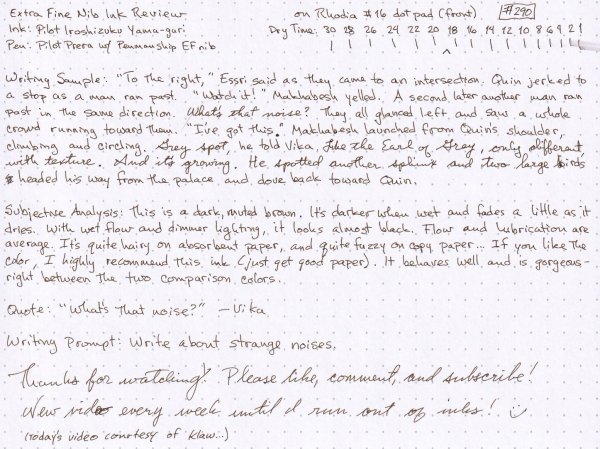 Extra Fine Nib Ink Review on Rhodia #16 dot pad (front) #290
Ink: Pilot Iroshizuku Yama-guri Dry Time: 30 28 26 24 22 20 18 16 14 12 10 8 6 4 2 1
Pen: Pilot Prera w/ Penmanship EF nib
Writing Sample: "To the right," Essri said as they came to an intersection. Quin jerked to
a stop as a man ran past. "Watch it!" Makhabesh yelled. A second later another man ran
past in the same direction. What's that noise? They all glanced left and saw a whole
crowd running toward them. "I've got this." Makhabesh launched from Quin's shoulder,
climbing and circling. Grey spot, he told Vika, like the Earl of Grey, only different
with texture. And it's growing. He spotted another splink and two large birds
headed his way from the palace and dove back toward Quin.
Subjective Analysis: This is a dark, muted brown. It's darker when wet and fades a little as it
dries. With wet flow and dimmer lighting, it looks almost black. Flow and lubrication are
average. It's quite hairy on absorbent paper, and quite fuzzy on copy paper... If you like the
color, I highly recommend this ink (just get good paper). It behaves well and is gorgeous-
right between the two comparison colors.
Quote: "What's that noise?" -Vika
Writing Prompt: Write about strange noises.
Thanks for watching! Please like, comment, and subscribe!
New video every week until I run out of inks!
(Today's video courtesy of Klaw...)